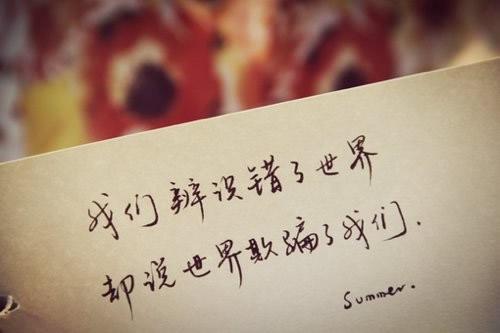 我们辨识错了世界
却说世界欺骗了我们.
Summer.